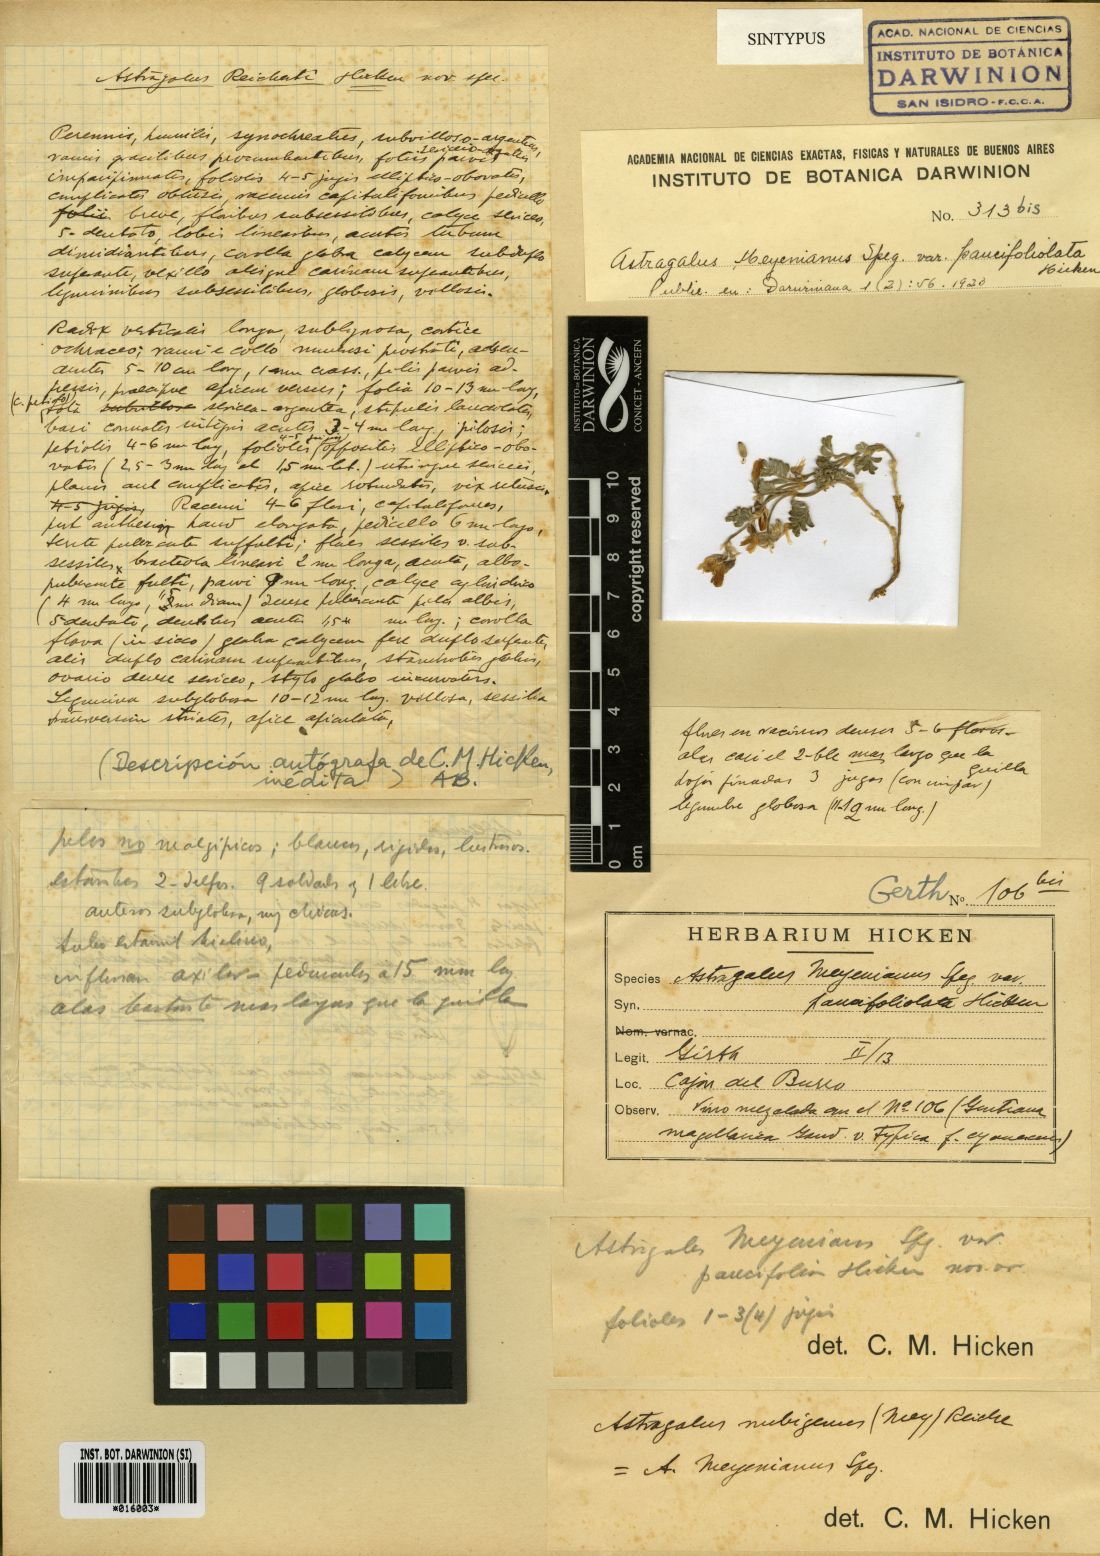 SINTYPUS
ACAD. NACIONAL DE CIENCIAS
INSTITUTO DE BOTÁNICA
DARWINION
SAN ISIDRO - F.C.C.A.
ACADEMIA NACIONAL DE CIENCIAS EXACTAS, FISICAS Y NATURALES DE BUENOS AIRES
INSTITUTO DE BOTANICA DARWINION
No. 313 bis
Astragalus Meyenianus Speg. var. paucifoliolata
Hicken
Public. en: Darwiniana 1 (2): 56. 1920
Astragalus Reicherti Hicken nov. spec.
Perennis, humilis, synochreatus, subvilloso-argenteus,
ramis gracilibus procumbentibus, foliis parvis
imparipinnatis, foliolis 4-5 jugis elliptico-obovatis,
complicatis obtusis, racemis capituliformibus pedicello
folii breve, floribus subsessilibus, calyce sericeo,
5-dentato, lobis linearibus, acutis tubum
dimidiantibus, corolla glabra calycem subduplo
superante, vexillo alisque carinam superantibus,
leguminibus subsessilibus, globosis, villosis.
Radix verticalis longa, sublignosa, cortice
ochraceo; rami e collo numerosi prostrati, adscen-
dentes 5-10 cm long, 1 mm crass., pilis parvis ad-
pressis, praecipue apicem versus; folia 10-13 mm long,
(c. petiolo) tota sericea-argentea, stipulis lanceolatis,
basi connatis integris acutis 3-4 mm long, pilosis;
petiolis 4-6 mm long, foliolis 4-5 jugis oppositis elliptico-obo-
vatis (2,5-3 mm long et 1,5 mm lat.) utrinque sericeis,
planis aut complicatis, apice rotundatis, vix retusis,
4-5 jugis, Racemi 4-6 flori, capituliformes,
post anthesin haud elongata, pedicello 6 mm longo,
suffulti; flores sessiles v. sub-
sessiles, bracteola lineari 2 mm longa, acuta, albo-
puberante fulti, parvi 9 mm long, calyce cylindrico
(4 mm longo, mm diam) dense puberante pilis albis,
5 dentato, dentibus acutis mm long.; corolla
flava (in sicco) glabra calycem fere duplo superante,
alis duplo carinam superantibus, staminibus glabris,
ovario dense sericeo, stylo glabro incurvato.
Legumina subglobosa 10-12 mm long. villosa, sessilia
transversim striatis, apice apiculata,
(Descripción autógrafa de C. M. Hicken,
inédita) AB.
INSTITUTO DE BOTÁNICA
DARWINION
CONICET - ANCEFN
copyright reserved
0 1 2 3 4 5 6 7 8 9 10
cm
flores en racimos densos 5-6 flores-
alas casi el 2-ble mas largo que la
quilla
hojas pinadas 3 jugas (con impar)
legumbre globosa (11-12 mm long.)
pelos no malgipicos; blancos, rigidos, lustrosos.
estambres 2-delfos. 9 soldados y 1 libre.
anteras subglobosa, muy chicas.
tubo estaminal hialino,
axilar- pedunculos a 15 mm long
alas bastante mas largas que la quilla
Gerth No. 106 bis
HERBARIUM HICKEN
Species Astragalus Meyenianus Speg. var.
Syn. paucifoliolata Hicken
Nom. vernac.
Legit. Gerth II/13
Loc. Cajon del Burro
Observ. Vino mezclada con el Nº 106 (Gentiana
magellanica Gaud. v. Typica f. cyanescens)
Astragalus Meyenianus Speg. var.
paucifolia Hicken nov. var.
folioles 1-3(4) jugis
det. C. M. Hicken
Astragalus nubigenus (Mey) Reiche
= A. Meyenianus Speg.
det. C. M. Hicken
INST. BOT. DARWINION (SI)
*016003*